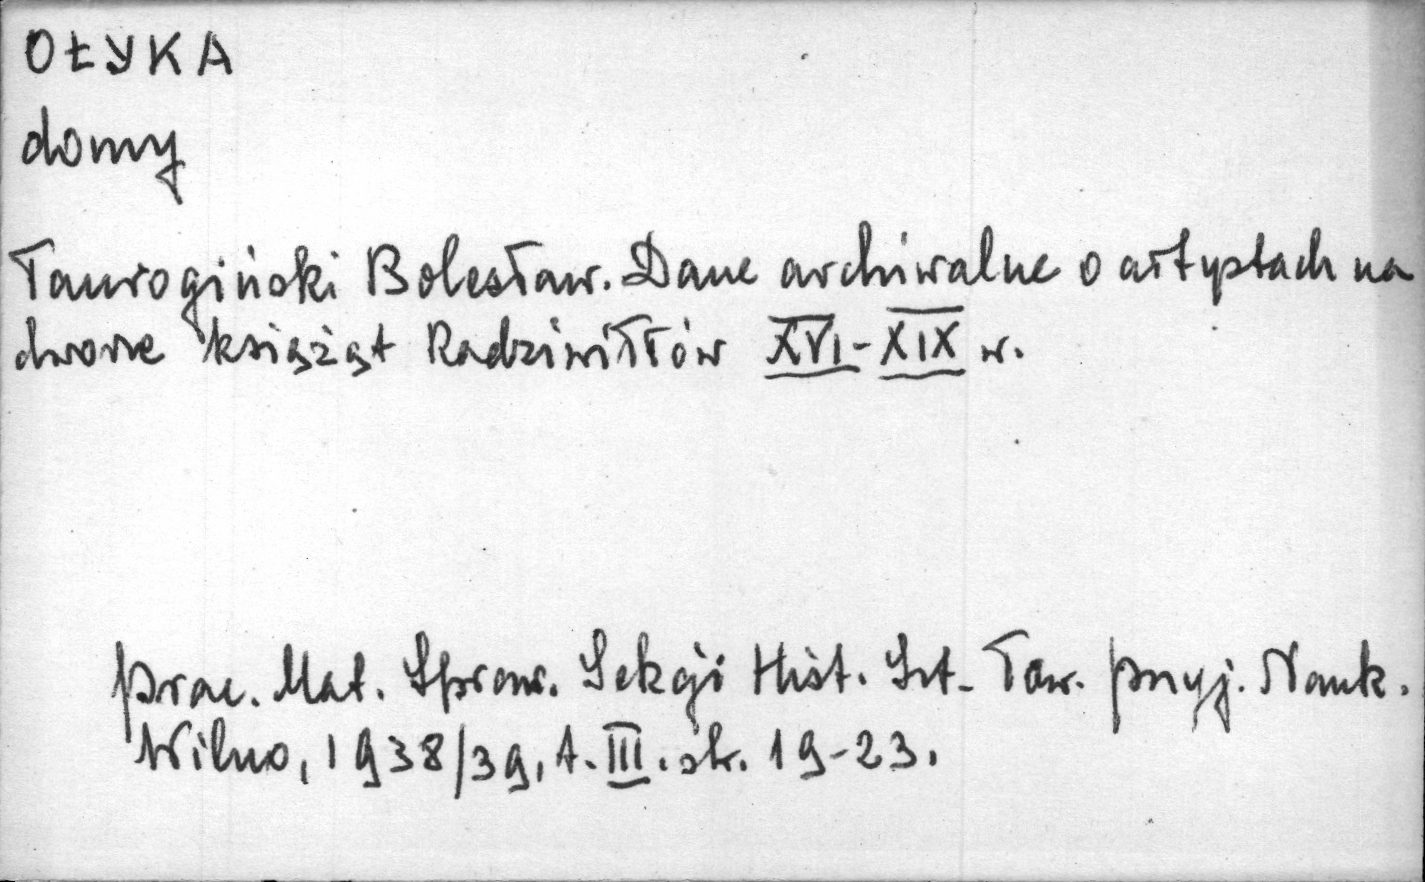 OŁYKA
domy
Taurogiński Bolesław. Dane archiwalne o artystach na
dworze książąt Radziwiłłów XVI-XIX w.
Prac. Mat. Spraw. Sekcji Hist. Szt. Tow. Przyj. Nauk.
Wilno, 1938/39, t. III. str. 19-23.